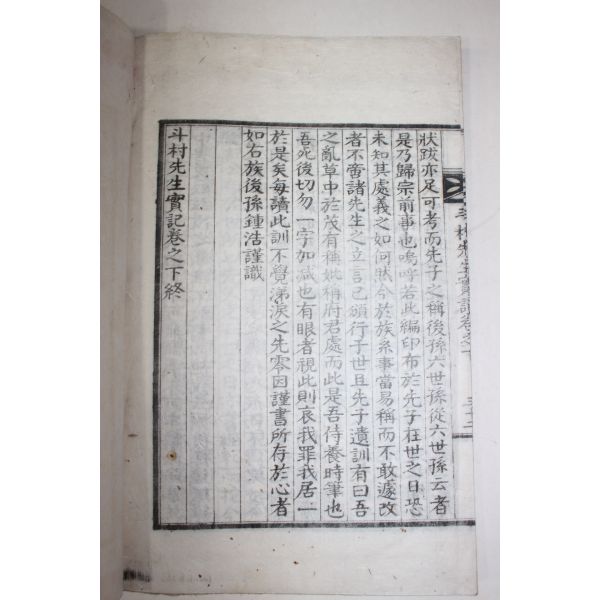 斗村先生實記卷之下
三十二
狀跋亦足可考而先子之稱後孫六世孫從六世孫云者
是乃歸宗前事也嗚呼若此編印布於先子在世之日恐
未知其處義之如何然今於族系事當易稱而不敢遽改
者不啻諸先生之立言已頒行于世且先子遺訓有曰吾
之亂草中於茂有稱妣稱府君處而此是吾侍養時筆也
吾死後切勿一字加減也有眼者視此則哀我罪我居一
於是矣每讀此訓不覺涕淚之先零因謹書所存於心者
如右族後孫鍾浩謹識
斗村先生實記卷之下終